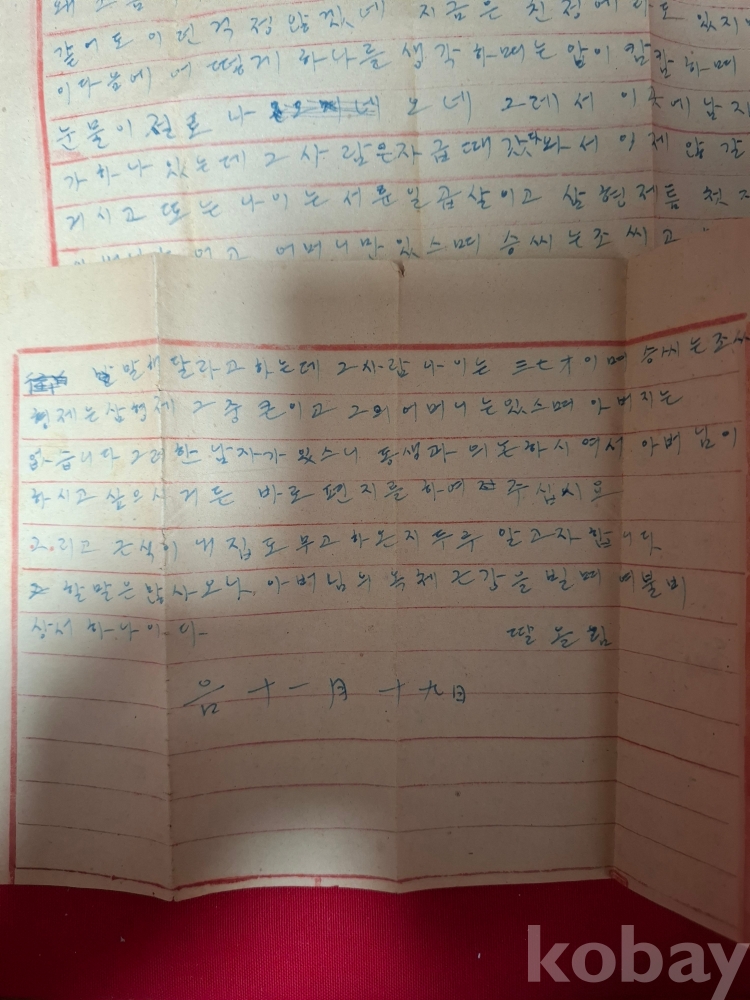 같어도 이런 걱정 않겠네 지금은 친정에라도 있지
이다음에 어떻게 하나를 생각하며는 앞이 캄캄하며
눈물이 절로 나오네 그레서 이곳에 남자
가 하나 있는데 그 사람은 자금 때 갔다와서 이제 않갈
거시고 또는 나이는 서른일곱살이고 삼현제틈 첫
고 어머니만 있스며 승씨는 조씨고
말해달라고 하는데 그사람 나이는 三七才이며 승씨는 조씨
형제는 삼형제 그중 큰이고 그외 어머니는 있스며 아버지는
없습니다 그러한 남자가 있스니 동생과 의논하시여서 아버님이
하시고 싶으시거든 바로 편지를 하여 주십시요
그리고 근식이 내 집도 무고하온지 두루 알고자 합니다
할말은 많사오나 아버님의 옥체 근강을 빌며 이불비
상서 하나이다
딸 올림
음 十一月 十九日
kobay